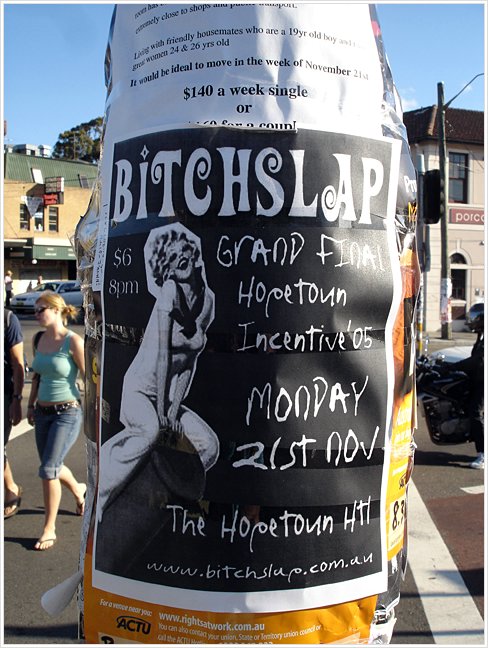 room has
extremely close to shops and public transport.
Living with friendly housemates who are a 19yr old boy and
great women 24 & 26 yrs old
It would be ideal to move in the week of November 21st
$140 a week single
or
$160 for a coupl
BiTCHSLAP
$6
8pm
GRAND FINAL
Hopetoun
Incentive '05
MONDAY
21st NOV
The Hopetoun Htl
www.bitchslap.com.au
For a venue near you:
ACTU
www.rightsatwork.com.au
You can also contact your union, State or Territory union council or
call the ACTU
8.3
porco